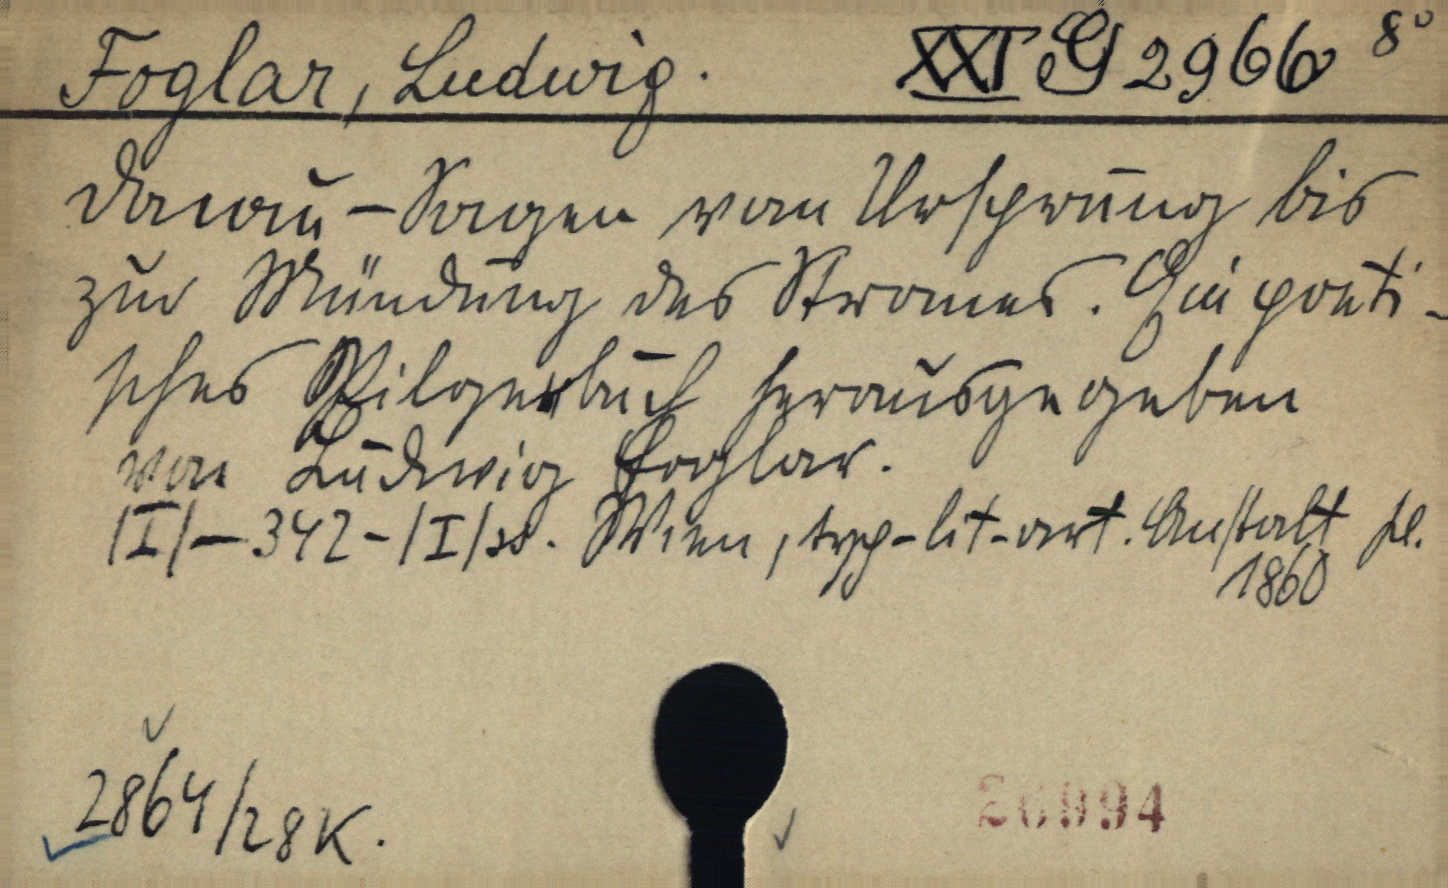 Foglar, Ludwig. XXI G 2966 8°
Donau-Sagen vom Ursprung bis
zur Mündung des Stromes. Ein poeti-
sches Pilgerbuch herausgegeben
von Ludwig Foglar.
|I|-342-|I|ss. Wien, typ-lit-art. Anstalt
1860
2864/28 K.
26994